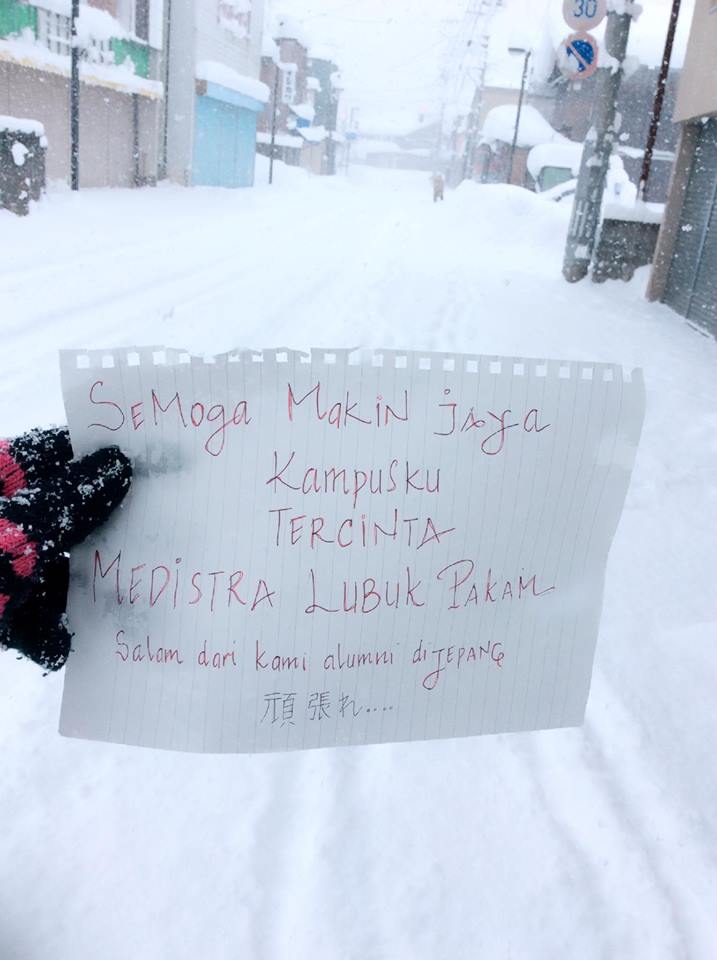 30
SEMoga MakiN jaya
Kampusku
TERCiNTA
MEDiSTRA LUBUK PAKAM
Salam dari kami alumni di JEPANG
頑張れ....